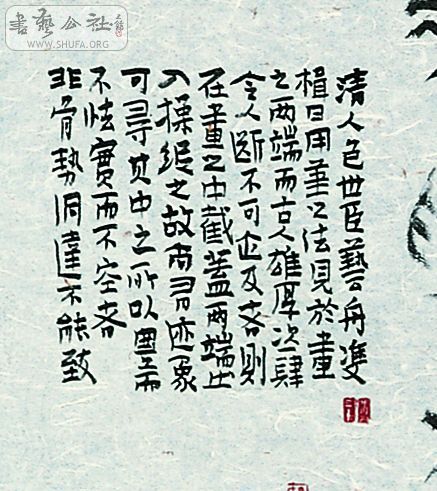 書藝公社
WWW.SHUFA.ORG
清人包世臣藝舟雙
楫曰用筆之法見於畫
之两端而古人雄厚恣肆
令人斷不可企及者則
在畫之中截蓋两端出
入操縱之故尚有迹象
可尋其中之所以豐而
不怯實而不空者
非骨勢洞達不能致